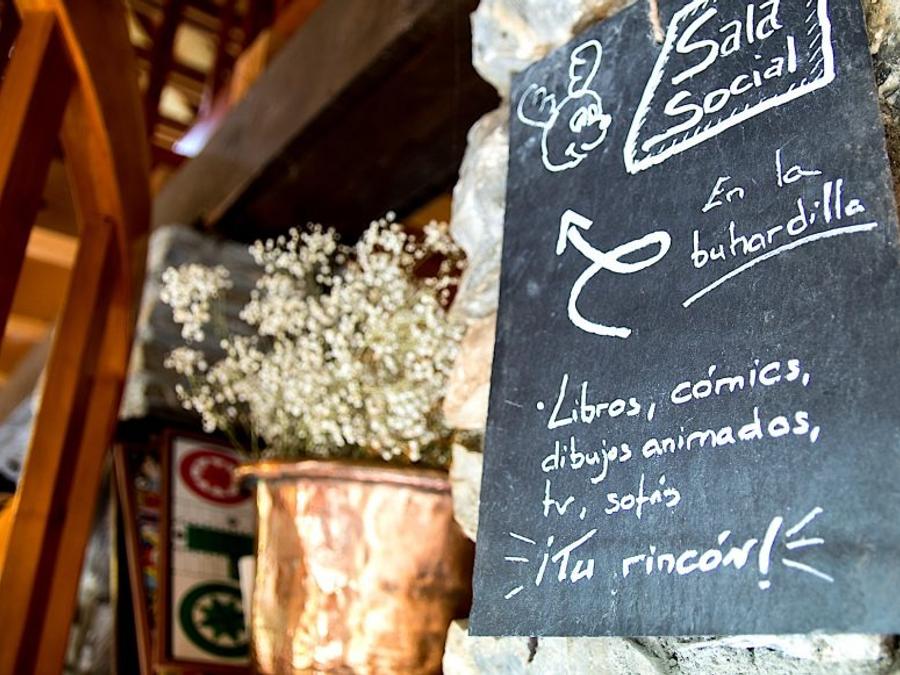 Sala
Social
En la
buhardilla
· Libros, cómics,
dibujos animados,
tv, sofás
¡Tu rincón!